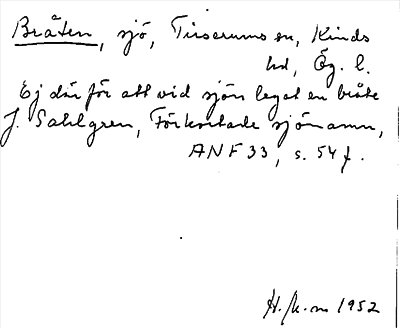 Bråten, sjö, Tirserums sn, Kinds
hd, Ög. l.
Ej därför att vid sjön legat en bråte
J. Sahlgren, Förkortade sjönamn,
ANF 33, s. 54 f.
1952